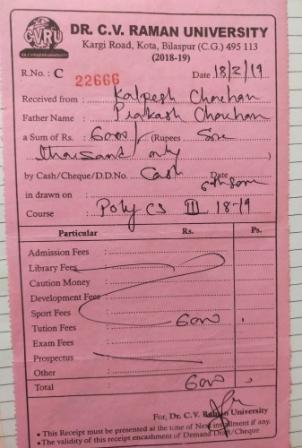 CVRU
DR. C.V. RAMAN UNIVERSITY
Kargi Road, Kota, Bilaspur (C.G.) 495 113
(2018-19)
R.No. : C 22666 Date 18/2/19
Received from : Kalpesh Chouhan
Father Name : Prakash Chouhan
a Sum of Rs. : 6000/ (Rupees Six
thousand only
by Cash/Cheque/D.D.No. Cash Date
in drawn on :
Course : Poly CS III 18-19
Particular Rs. Ps.
Admission Fees :
Library Fees :
Caution Money :
Development Fees
Sport Fees :
Tution Fees : 6000
Exam Fees :
Prospectus :
Other :
Total : 6000
For, Dr. C.V. Raman University
• This Receipt must be presented at the time of Next installment if any.
• The validity of this receipt encashment of Demand Draft/Cheque